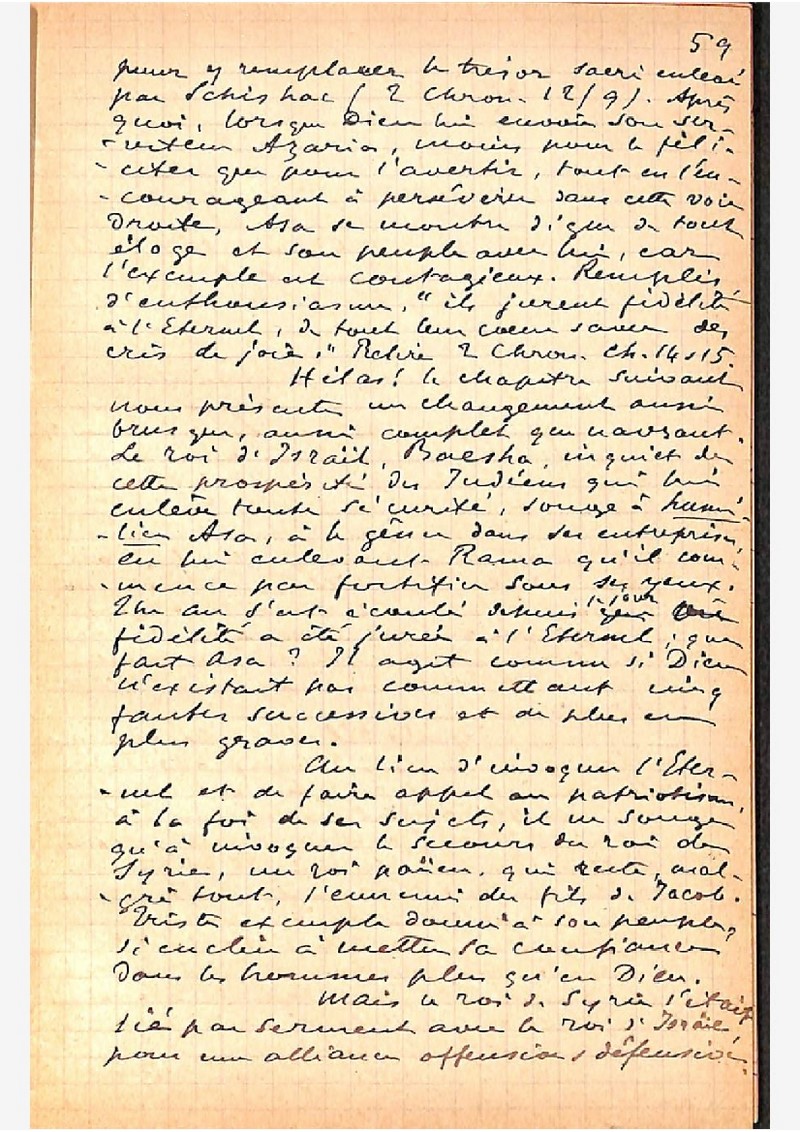 59
pour y remplacer le trésor sacré enlevé
par Schishac (2 Chron. 12/9). Après
quoi, lorsque Dieu lui envoie son ser-
-viteur Azaria, moins pour le féli-
-citer que pour l'avertir, tout en l'en-
-courageant à persévérer dans cette voie
droite, Asa se montre digne de tout
éloge et son peuple avec lui, car
l'exemple est contagieux. Remplis
d'enthousiasme, "ils jurent fidélité
à l'Eternel, de tout leur coeur avec des
cris de joie." Relire 2 Chron. ch. 14 & 15.
Hélas! le chapitre suivant
nous présente un changement aussi
brusque, aussi complet que navrant.
Le roi d'Israël, Baesha, inquiet de
cette prospérité des Judéens qui lui
enlève toute sécurité, songe à humi-
-lier Asa, à le gêner dans ses entreprises,
en lui enlevant Rama qu'il com-
-mence par fortifier sous ses yeux.
Un an s'est écoulé depuis le jour que
fidélité a été jurée à l'Eternel; que
fait Asa? Il agit comme si Dieu
n'existait pas commettant cinq
fautes successives et de plus en
plus graves.
Au lieu d'invoquer l'Eter-
-nel et de faire appel au patriotisme,
à la foi de ses sujets, il ne songe
qu'à invoquer le secours du roi de
Syrie, un roi païen, qui reste, mal-
-gré tout, l'ennemi des fils de Jacob.
Triste exemple donné à son peuple,
si enclin à mettre sa confiance
dans les hommes plus qu'en Dieu.
Mais le roi de Syrie s'était
lié par serment avec le roi d'Israël
pour une alliance offensive & défensive.